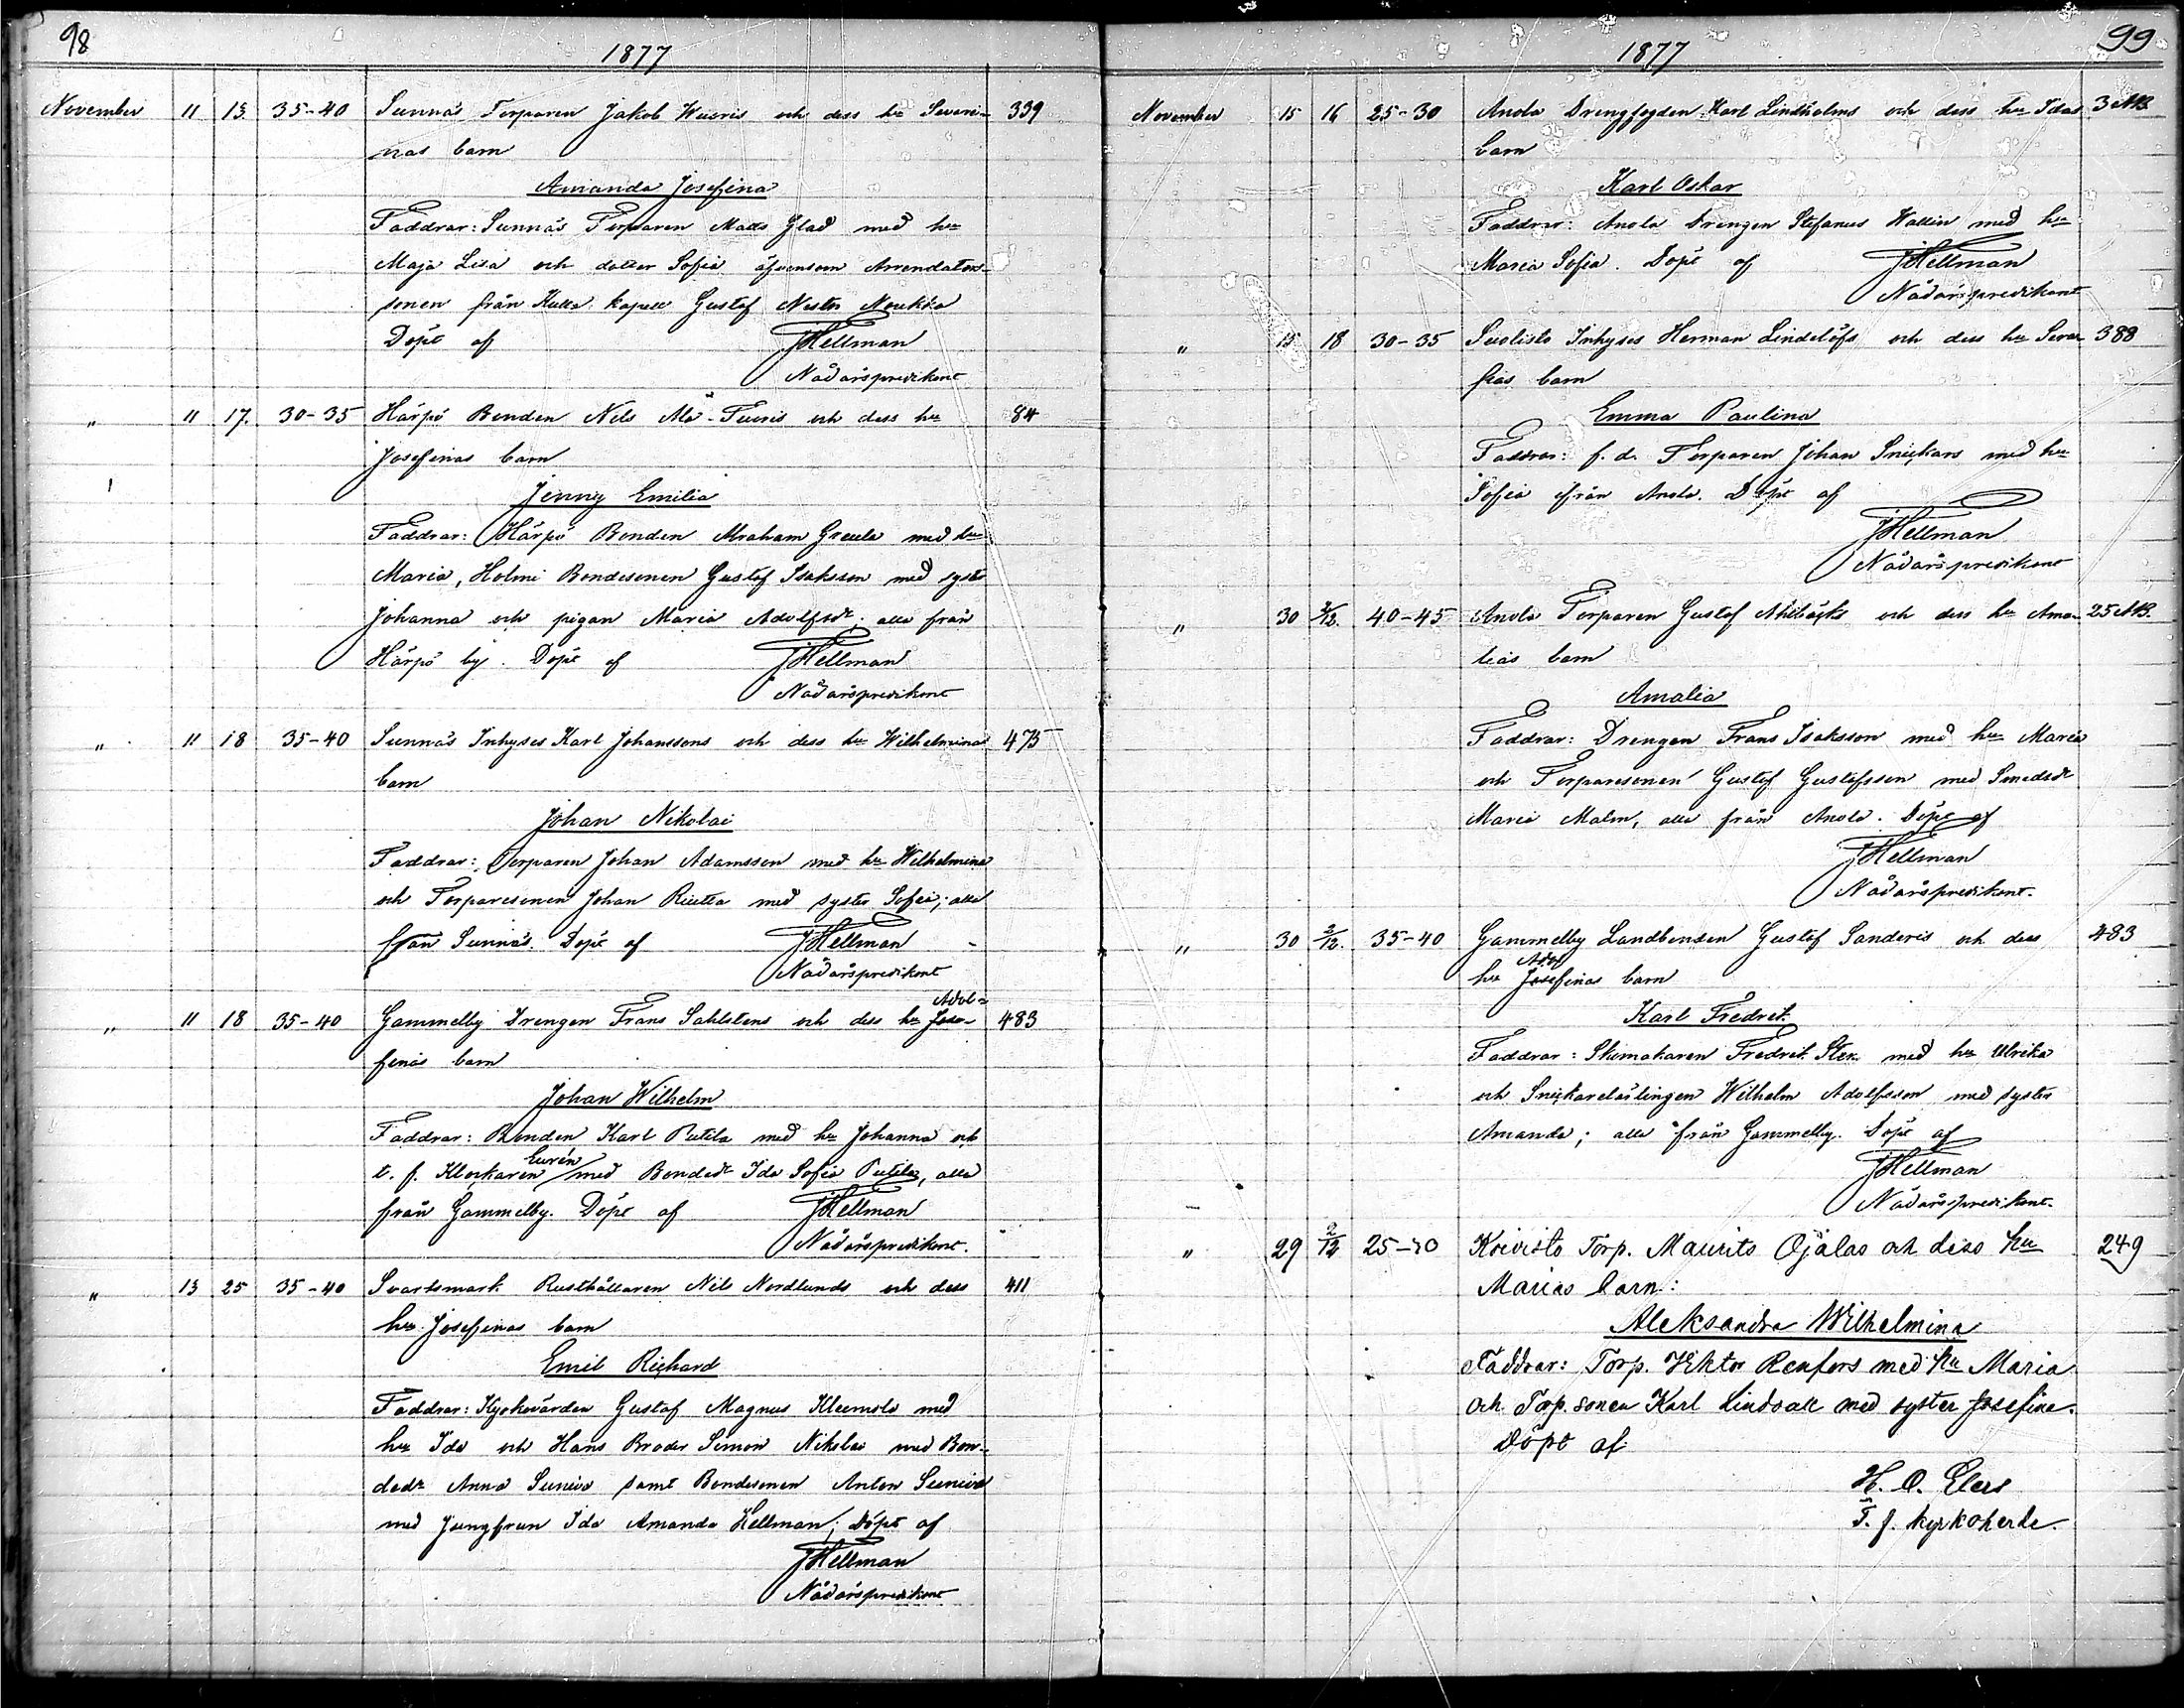 98
1877
November 11 13 35-40 Sunnäs Torparen Jakob Wuoris och dess hu Severi- 339
nas barn
Amanda Josefina
Faddrar: Sunnäs Torparen Mats Glad med hu
Maja Lisa och dotter Sofia äfvensom Arrendators-
sonen från Kulla kapell Gustaf Nestor
Döpt af JHellman
Nådårspredikant
" 11 17. 30-35 Härpö Bonden Nils Ala-Tuoris och dess hu 84
Josefinas barn
Jenny Emilia
Faddrar: Härpö Bonden Abraham Greula med hu
Maria, Holmi Bondesonen Gustaf Isaksson med syster
Johanna och pigan Maria Adolfsdr; alla från
Härpö by. Döpt af JHellman
Nådårspredikant
" 11 18 35-40 Sunnäs Inhyses Karl Johanssons och dess hu Wilhelminas 475
barn
Johan Nikolai
Faddrar: Torparen Johan Adamsson med hu Wilhelmina
och Torparesonen Johan med syster Sofia; alla
från Sunnäs. Döpt af JHellman
Nådårspredikant
Adol-
" 11 18 35-40 Gammelby Drengen Frans Sahlstens och dess hu Jose- 483
finas barn
Johan Wilhelm
Faddrar: Bonden Karl Putila med hu Johanna och
Eurén
t. f. Klockaren med Bondedr Ida Sofia Putila, alla
från Gammelby. Döpt af JHellman
Nådårspredikant.
" 13 25 35-40 Svartsmark Rusthållaren Nils Nordlunds och dess 411
hu Josefinas barn
Emil Richard
Faddrar: Kyrkovärden Gustaf Magnus Kleemola med
hu Ida och Hans Broder Simon Nikolai med Bon-
dedr Anna Sunivo samt Bondesonen Anton Sunivo
med Jungfrun Ida Amanda Hellman; Döpt af
JHellman
Nådårspredikant
99
1877
November 15 16 25-30 Anola Drengfogden Karl Lindholms och dess hu Idas 3 AB.
barn
Karl Oskar
Faddrar: Anola Drengen Stefanus Wallin med hu
Maria Sofia. Döpt af JHellman
Nådårspredikant
" 15 18 30-35 Suolisto Inhyses Herman Lindelöfs och dess hu Sera- 388
fias barn
Emma Paulina
Faddrar: f. d. Torparen Johan Snickars med hu
Sofia från Anola. Döpt af
JHellman
Nådårspredikant
" 30 2/12. 40-45 Anola Torparen Gustaf Ahlbäcks och dess hu Ama- 25 AB.
lias barn
Amalia
Faddrar: Drengen Frans Isaksson med hu Maria
och Torparesonen Gustaf Gustafsson med Smedsdr
Maria Malm, alla från Anola. Döpt af
JHellman
Nådårspredikant.
" 30 2/12. 35-40 Gammelby Landbonden Gustaf Sanderis och dess 483
Adol
hu Josefinas barn
Karl Fredrik
Faddrar: Skomakaren Fredrik Sten med hu Ulrika
och Snickarelärlingen Wilhelm Adolfsson med syster
Amanda; alla från Gammelby. Döpt af
JHellman
Nådårspredikant.
" 29 2/12 25-30 Koivisto Torp. Maurits Ojalas och dess hu 249
Marias barn:
Aleksandra Wilhelmina
Faddrar: Torp. Viktor Renfors med hu Maria
och Torp.sonen Karl Lindvall med syster Josefina.
Döpt af:
H. O. Elers
T. f. kyrkoherde.